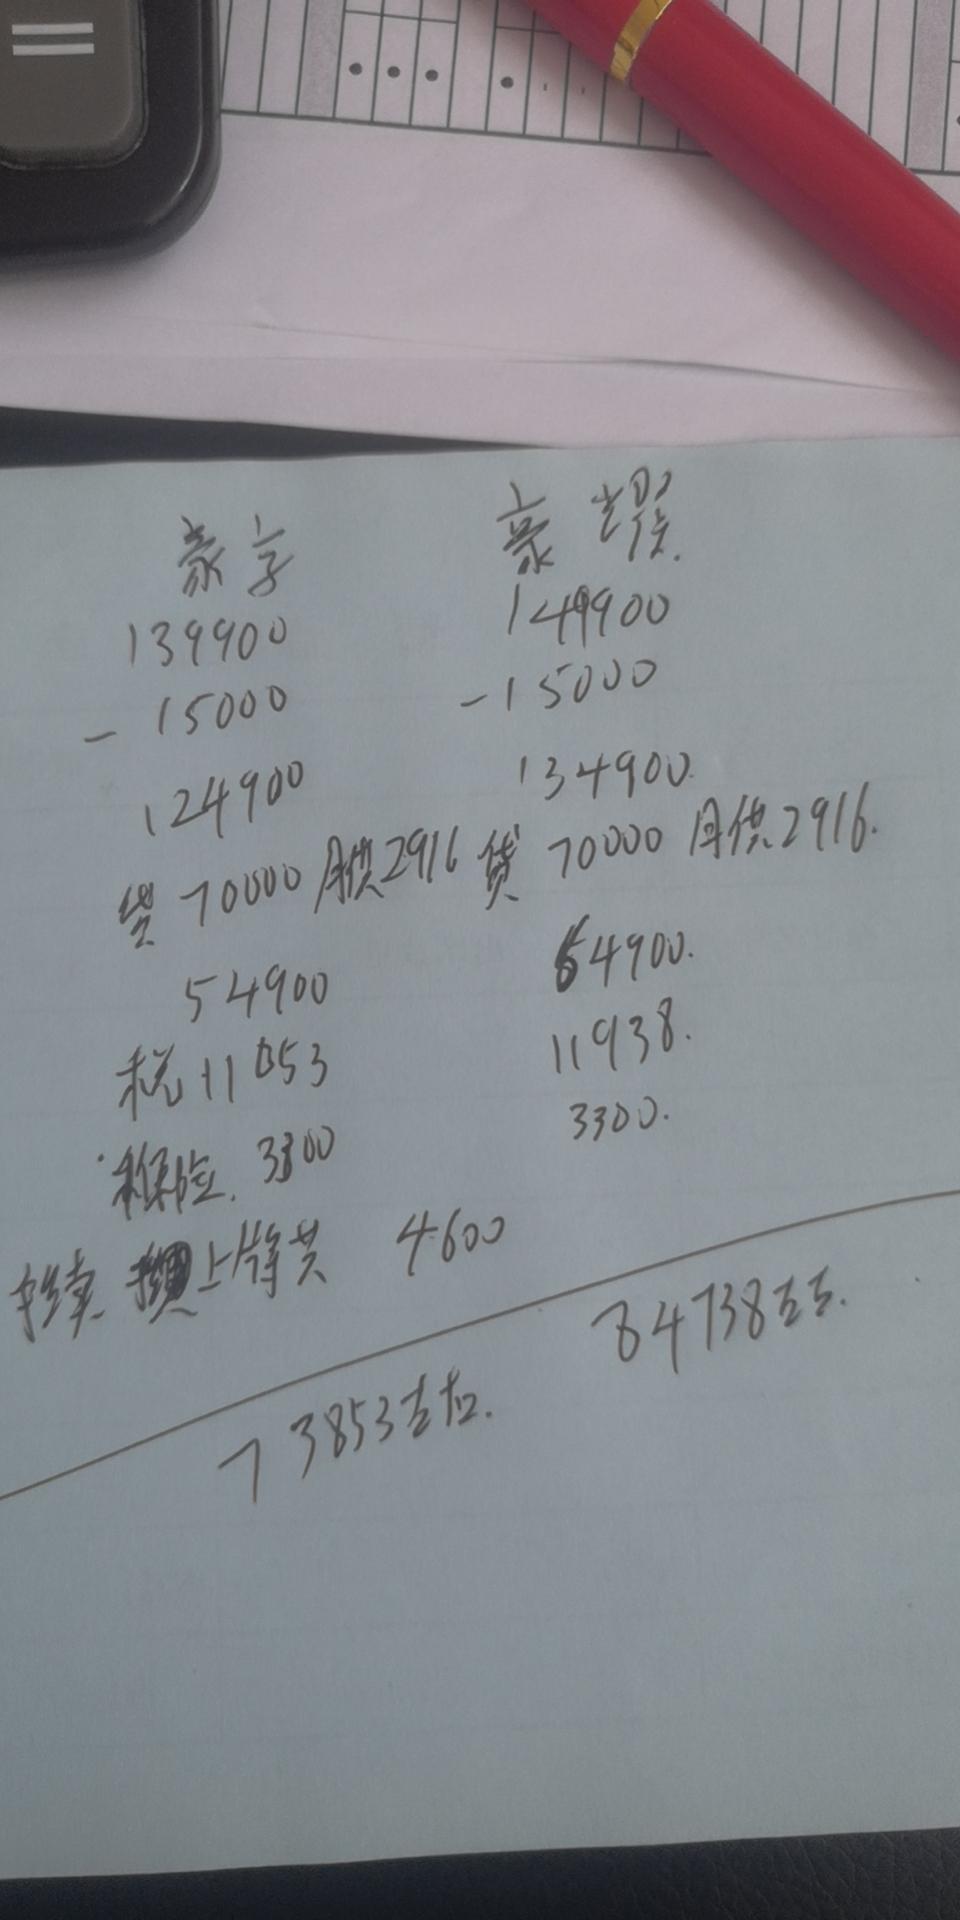 豪享 豪耀
139900 149900
- 15000 -15000
124900 134900
贷 70000 月供2916 贷 70000 月供2916.
54900 64900.
税 11053 11938.
保险. 3300 3300.
手续 上牌共 4600
73853左右. 84738左右.